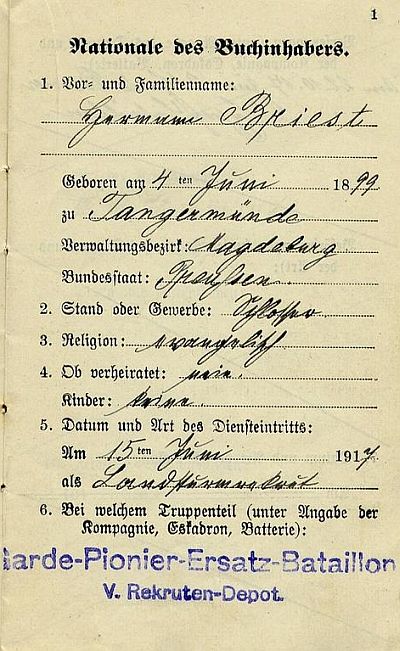 1
Nationale des Buchinhabers.
1. Vor- und Familienname:
Hermann Briest
Geboren am 4 ten Juni 1899
zu Tangermünde
Verwaltungsbezirk: Magdeburg
Bundesstaat: Preußen
2. Stand oder Gewerbe: Schlosser
3. Religion: evangelisch
4. Ob verheiratet: nein.
Kinder: keine.
5. Datum und Art des Diensteintritts:
Am 15 ten Juni 1917
als Landsturmrekrut
6. Bei welchem Truppenteil (unter Angabe der
Kompagnie, Eskadron, Batterie):
Garde-Pionier-Ersatz-Bataillon
V. Rekruten-Depot.